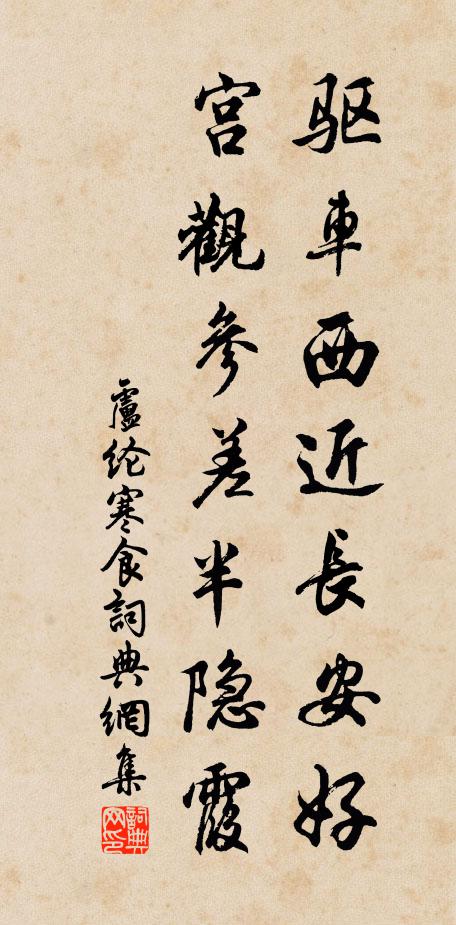 驱車西近長安好
宫觀參差半隐霞
盧纶寒食詞典網集
詞典网印